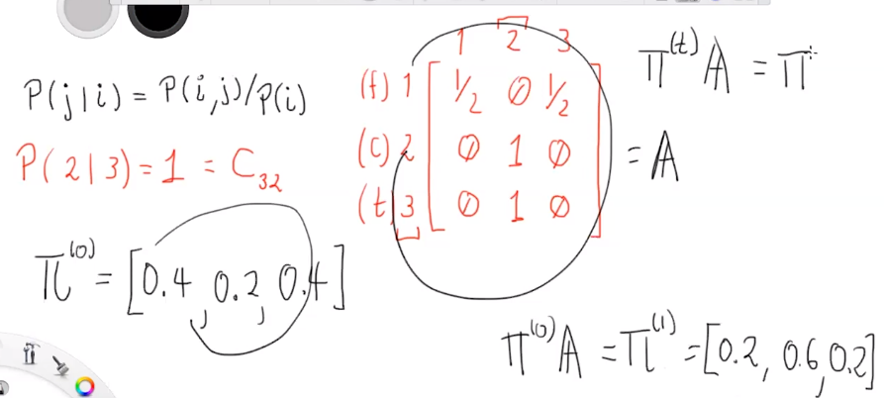 P(j|i) = P(i,j)/P(i)
P(2|3) = 1 = C₃₂
π⁽⁰⁾ = [0.4, 0.2, 0.4]
1 2 3
(f) 1 [ 1/2 ∅ 1/2 ]
(C) 2 [ ∅ 1 ∅ ] = A
(t) 3 [ ∅ 1 ∅ ]
π⁽ᵗ⁾ A = π
π⁽⁰⁾ A = π⁽¹⁾ = [0.2, 0.6, 0.2]